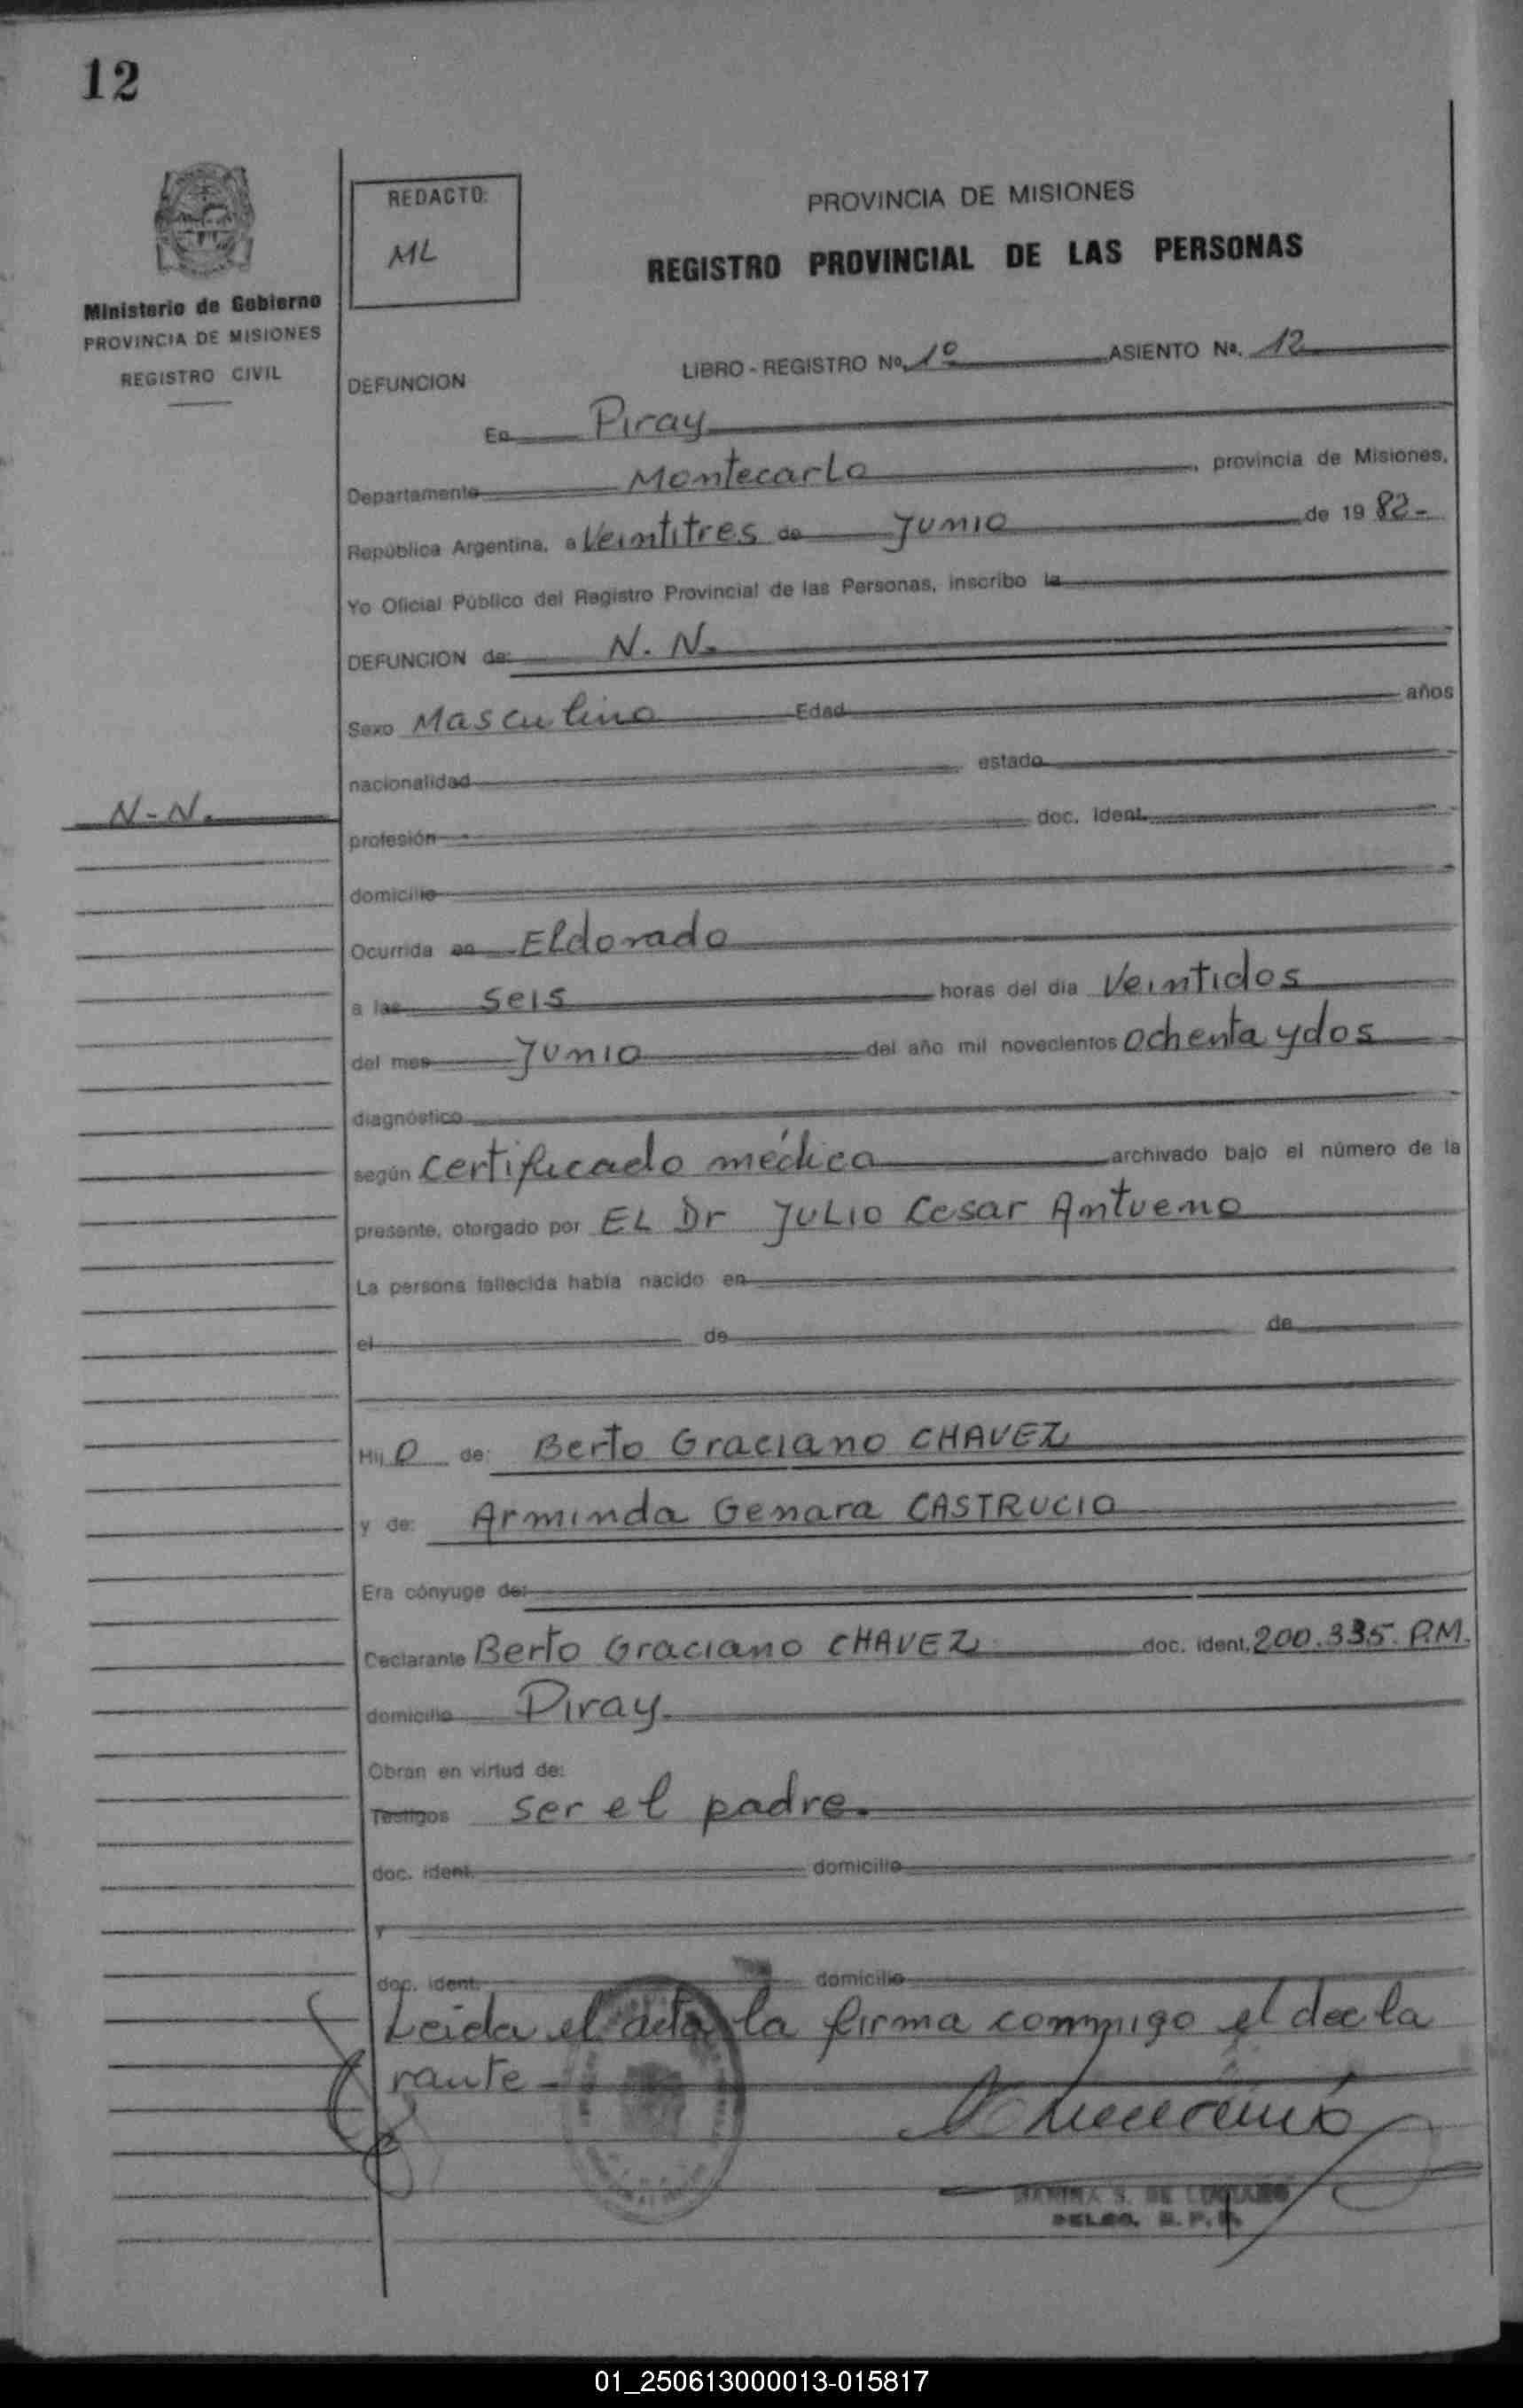 12
REDACTO:
ML
Ministerio de Gobierno
PROVINCIA DE MISIONES
REGISTRO CIVIL
PROVINCIA DE MISIONES
REGISTRO PROVINCIAL DE LAS PERSONAS
LIBRO - REGISTRO Nº. 1º ASIENTO Nº. 12
DEFUNCION
En Piray
Departamento Montecarlo, provincia de Misiones,
República Argentina, a Veintitres de Junio de 1982-
Yo Oficial Público del Registro Provincial de las Personas, inscribo la
DEFUNCION de: N. N.
Sexo Masculino Edad años
nacionalidad estado
N-N.
profesión doc. ident.
domicilio
Ocurrida en Eldorado
a las seis horas del día Veintidos
del mes Junio del año mil novecientos ochenta y dos
diagnóstico
según certificado médico archivado bajo el número de la
presente, otorgado por EL Dr JULIO Cesar Antueno
La persona fallecida había nacido en
el de de
Hij o de: Berto Graciano CHAVEZ
y de: Arminda Genara CASTRUCIO
Era cónyuge de:
Declarante Berto Graciano CHAVEZ doc. ident. 200.335. P.M.
domicilio Piray
Obran en virtud de:
Testigos ser el padre.
doc. ident. domicilio
y
doc. ident. domicilio
Leida el acta la firma conmigo el decla
rante
S. DE
DELEG. R. P. P.
01_250613000013-015817